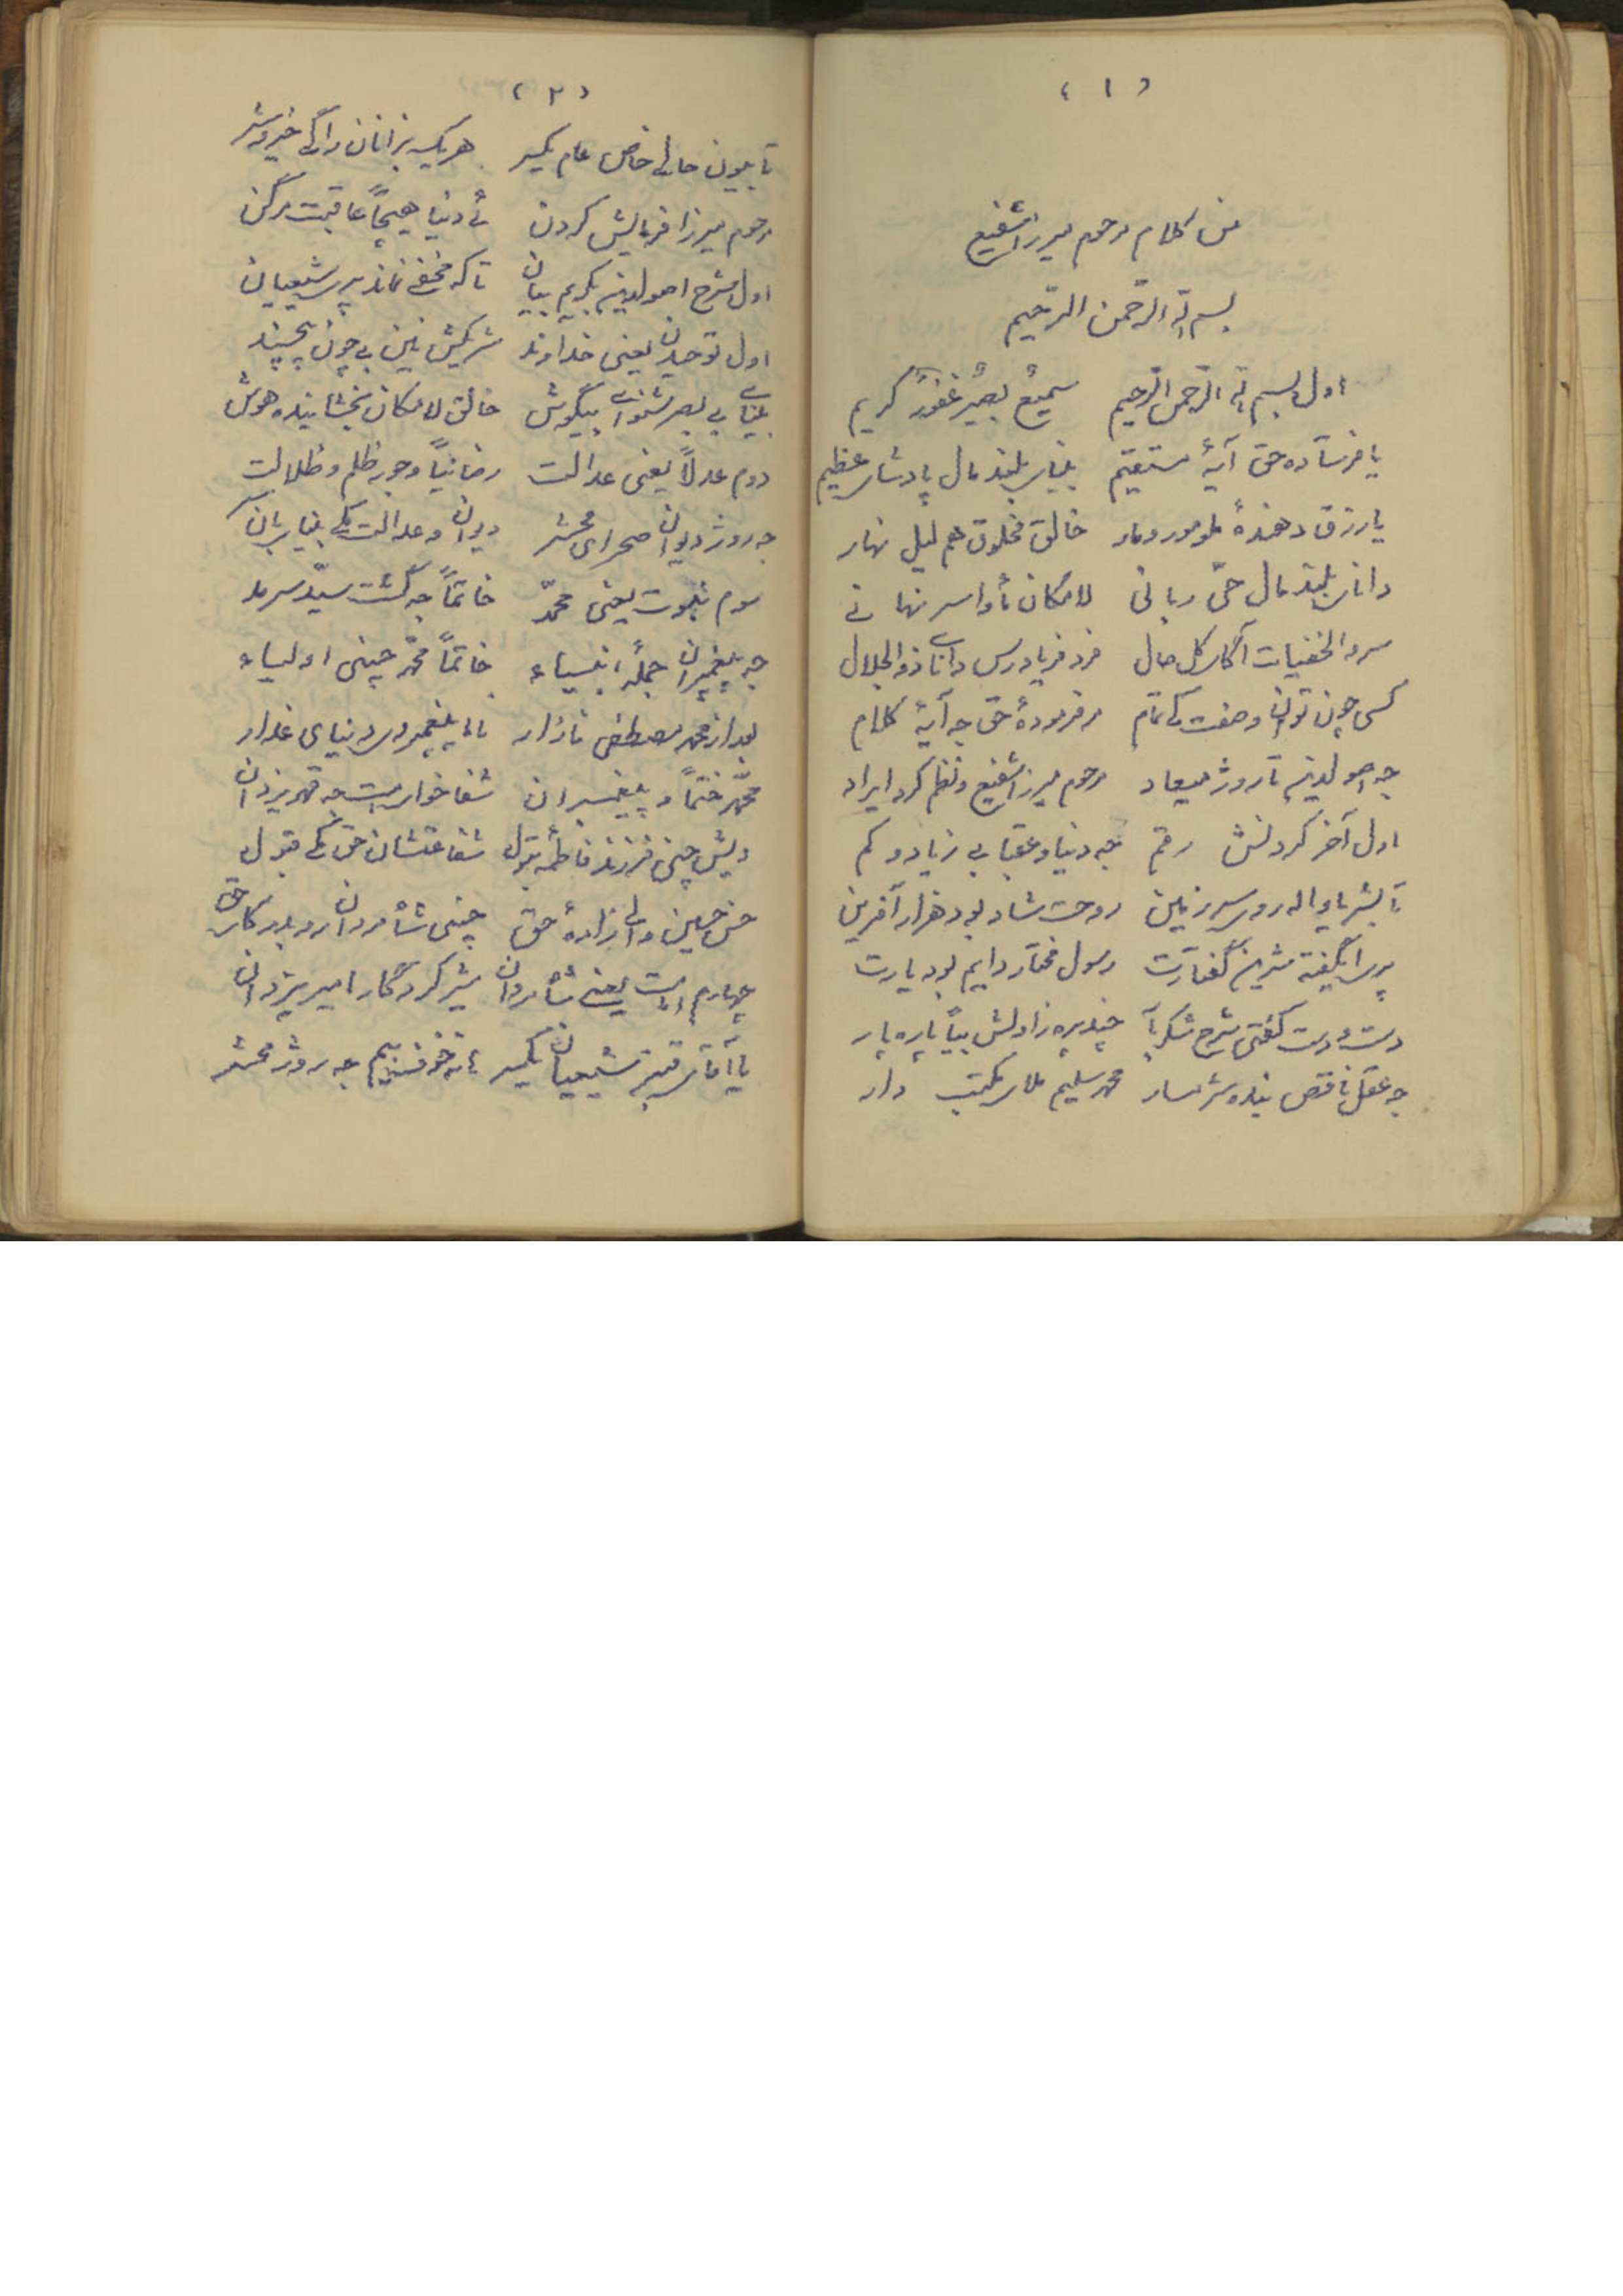 ( ۱ )
من کلام مرحوم میرزا شفیع
بسم الله الرحمن الرحیم
اول بسم الله الرحمن الرحیم سمیعٌ بصیرٌ غفورٌ کریم
یا فرستاده حق آیهٔ مستقیم بینای بلند مال پادشای عظیم
یا رزق دهندهٔ مور و مار خالق مخلوق هم لیل نهار
دانای بلند مال حیّ ربانی لامکان مأوا سر نهانی
سرد الخفیات آکای کل حال فرد فریادرس دانای ذوالجلال
کسی چون توان وصفت کا تمام مر فرمودهٔ حق جه آیهٔ کلام
جه اصولدین تا روژ میعاد مرحوم میرزا شفیع و نظم کرد ایراد
اول آخر کردنش رقم جه دنیا و عقبا بی زیاد و کم
تا بشر ماواله رور سرزمین روحت شاد بود هزار آفرین
پری ای گفته شرین گفتارت رسول مختار دایم بود یارت
دست و دست کفتی شرح شکربار چند پره زاولش بیاً پاره پار
جه عقل ناقص بنده شرمسار محمد سلیم ملای مکتب دار
( ۲ )
تا بیون حالی خاص عام یکسر هر یک بزانان راگی خیر و شر
مرحوم میرزا فرمایش کردن ئی دنیا هیچاً عاقبت مرگن
اول شرح اصولدین بکریم بیان تا که مخفی نماند پری شیعیان
اول توحیدن یعنی خداوند شریکش نین بی چون بیچند
بینای بی بصر شنوای بیگوش خالق لامکان بخشاینده هوش
دوم عدلاً یعنی عدالت رضا نیاً و جور ظلم و ظلالت
جه روژ دیوان صحرای محشر دیوان و عدالت مکی بینای بان سر
سوم نبوت یعنی محمدّ خاتماً جه گشت سیّد سرمد
جه پیغمبران جملهٔ انبیاء خاتماً محمّد چنی اولیاء
بعد از محمد مصطفی نازدار نامای پیغمبر و سر دنیای غدار
محمّد ختماً و پیغمبران شفا خوای امت جه قهر یزدان
ویش چنی فرزند فاطمهٔ بتول شفاعتشان حق مکی قبول
حسن حسین والی زادهٔ حق چنی شأ مردان رو بدرکای حق
چهارم امامت یعنی شأمردان شیر کردگار امیر یزدان
یا آقای قنبر شیعیان یکسر مارخوفنیم جه روژ محشر